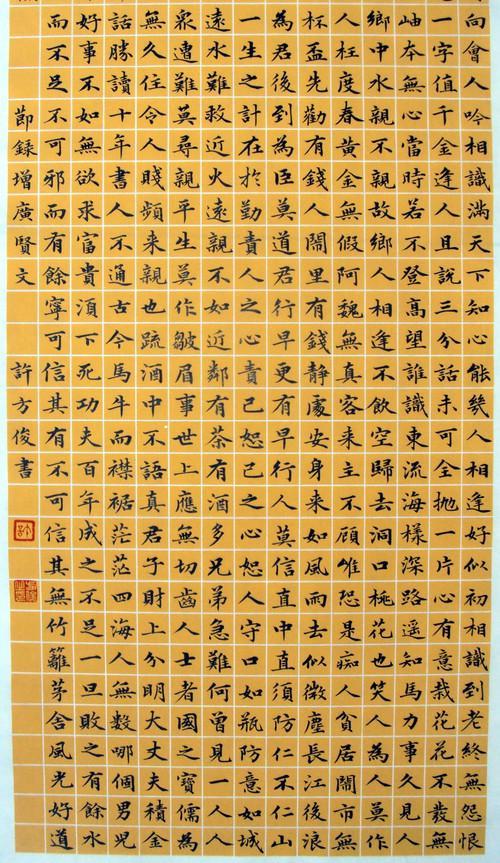 向會人吟相識滿天下知心能幾人相逢好似初相識到老終無怨恨
一字值千金逢人且說三分話未可全拋一片心有意栽花花不發無
岫本無心當時若不登高望誰識東流海樣深路遙知馬力事久見人
鄉中水親不親故鄉人相逢不飲空歸去洞口桃花也笑人為人莫作
人枉度春黃金無假阿魏無真客來主不顧惟恐是痴人貧居鬧市無
杯盃先勸有錢人鬧里有錢靜處安身來如風而去似微塵長江後浪
為君後到為臣莫道君行早更有早行人莫信直中直須防仁不仁山
一生之計在於勤責人之心責己恕己之心恕人守口如瓶防意如城
遠水難救近火遠親不如近鄰有茶有酒多兄弟急難何曾見一人人
眾遭難莫尋親平生莫作皺眉事世上應無切齒人士者國之寶儒為
無久住令人賤頻來親也疏酒中不語真君子財上分明大丈夫積金
話勝讀十年書人不通古今馬牛而襟裾茫茫四海人無數哪個男兒
好事不如無欲求富貴須下死功夫百年成之不足一旦敗之有餘水
而不足不可邪而有餘寧可信其有不可信其無竹籬茅舍風光好道
節録增廣賢文 許方俊書